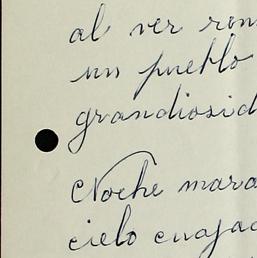 al ver ren
un pueblo
grandiosid
Noche mara
cielo cuajad